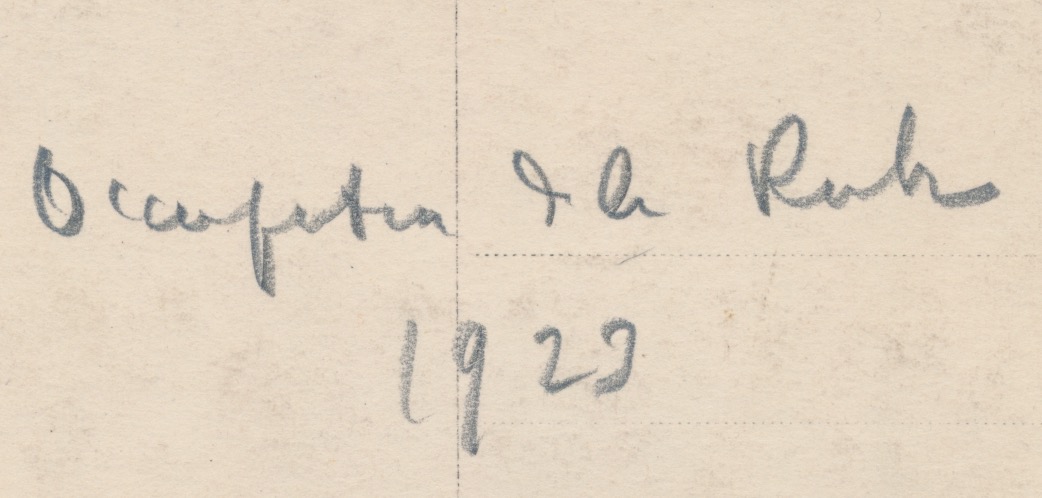 Occupation de la Ruhr
1923